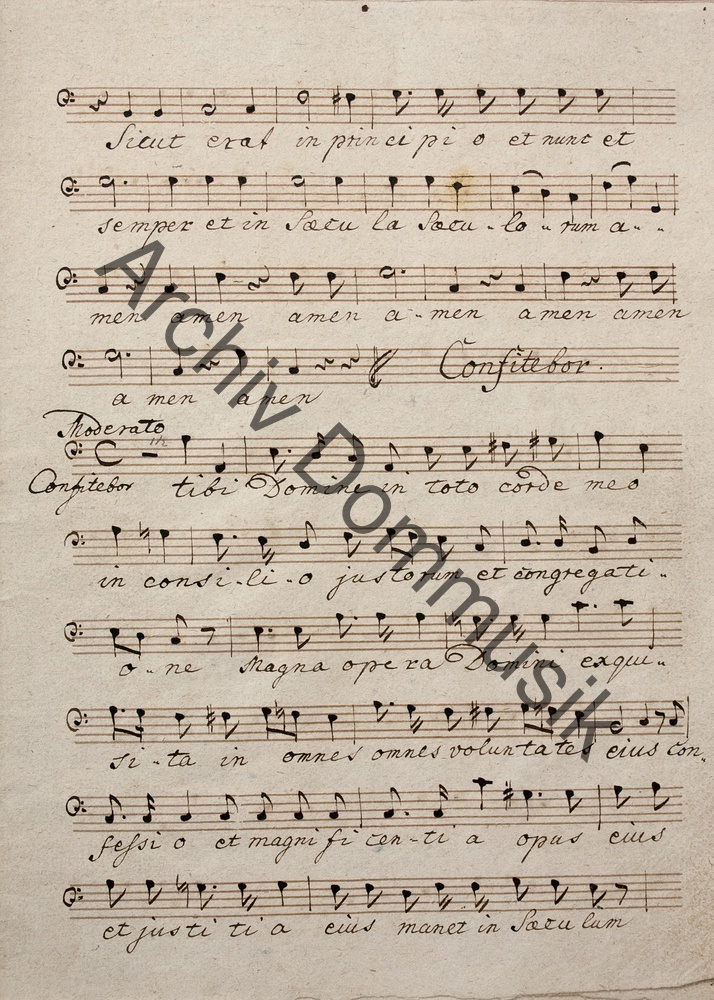 Sicut erat in principi o et nunc et
semper et in Sœcu la Sœcu - lo - rum a - -
men amen amen a - men amen amen
a men amen Confitebor.
Moderato
Confitebor tibi Domine in toto corde meo
in consi - li - o justorum et congregati -
o - ne Magna opera Domini exqui -
si - ta in omnes omnes voluntates eius con
fessi o et magnifi cen - ti a opus eius
et justi ti a eius manet in Sœcu lum
Archiv Dommusik